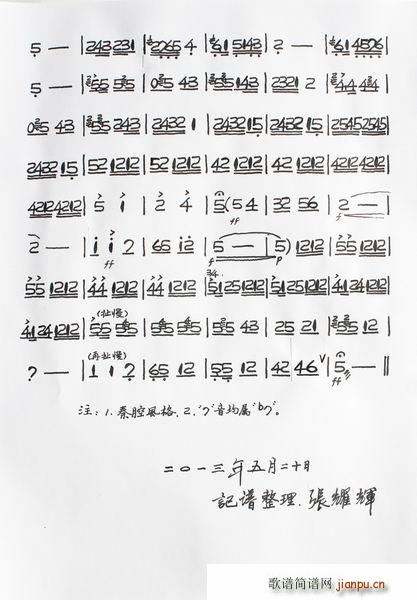 5 — | 243231 | 2265 4 | 61 5143 | 2 — | 61 4526
5 — | 55 55 | 05 43 | 55143 | 2321 2 | 44 44
05 43 | 55 243 | 2432 1 | 2432 15 | 2432 15 | 25452545
2432 15 | 52 1212 | 52 1212 | 42 1212 | 42 1212 | 42124212
42124212 | 5 i | 2 4 | 5 (54 | 32 56 | 2 —
ff f
2 — | i i 2 | 65 i2 | 5 — | 5) 1212 | 55 1212
ff f p
55 1212 | 44 1212 | 44 1212 | 51 251212 | 51 251212
(扯慢)
41 241212 | 55 55 | 55 55 | 55 43 | 25 21 | 55 12
(再扯慢)
? — | 1 1 2 | 65 12 | 55 12 | 42 46 ∨ | 5 — ‖
ff
注：1. 秦腔風格. 2. "7"音均属"b7"。
二〇一三年五月二十日
記谱整理. 張耀輝
歌谱简谱网
jianpu.cn